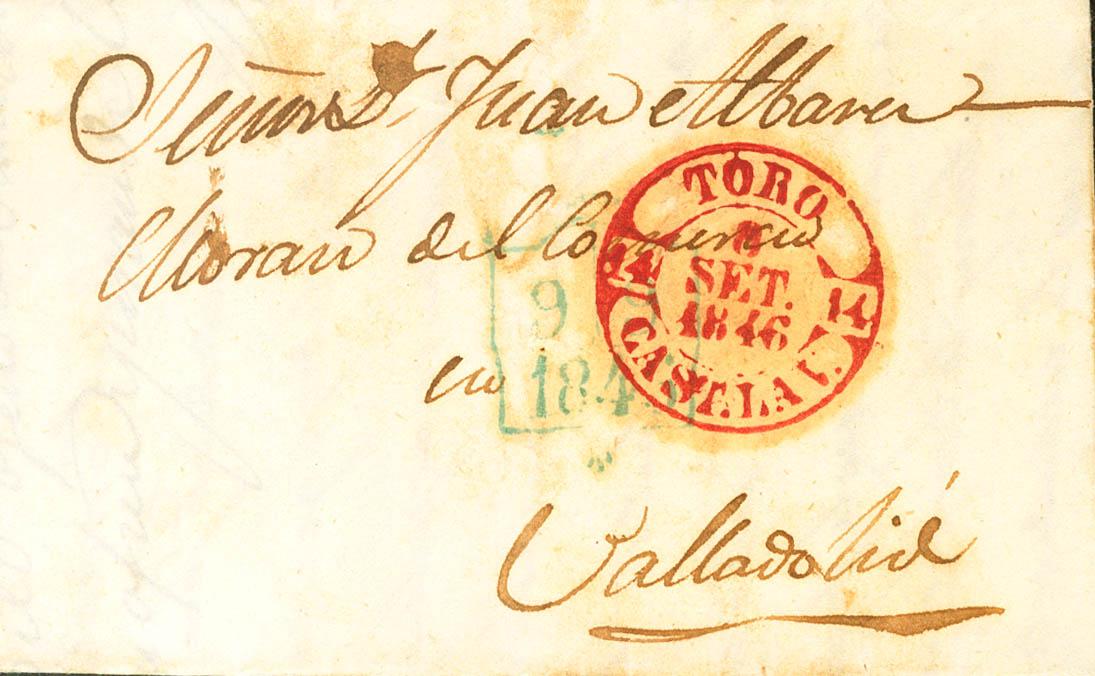 Señor D. Juan Albarez
Moran del Comercio
en
Valladolid
TORO
14 SET. 14
1846
CAST. LA V.
9 S
1846